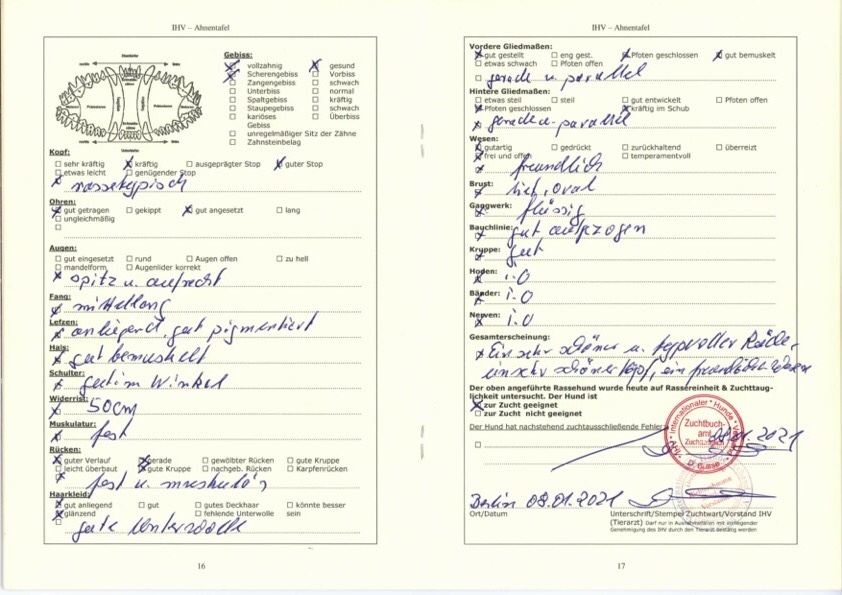 IHV – Ahnentafel
Gebiss:
vollzahnig gesund
Scherengebiss Vorbiss
Zangengebiss schwach
Unterbiss normal
Spaltgebiss kräftig
Staupegebiss schwach
kariöses Überbiss
Gebiss
unregelmäßiger Sitz der Zähne
Zahnsteinbelag
Kopf:
sehr kräftig kräftig ausgeprägter Stop guter Stop
etwas leicht genügender Stop
rassetypisch
Ohren:
gut getragen gekippt gut angesetzt lang
ungleichmäßig
Augen:
gut eingesetzt rund Augen offen zu hell
mandelform Augenlider korrekt
spitz u. aufrecht
Fang:
mittellang
Lefzen:
anliegend, gut pigmentiert
Hals:
gut bemuskelt
Schulter:
gut im Winkel
Widerrist:
50cm
Muskulatur:
fest
Rücken:
guter Verlauf gerade gewölbter Rücken gute Kruppe
leicht überbaut gute Kruppe nachgeb. Rücken Karpfenrücken
fest u. muskulös
Haarkleid:
gut anliegend gut gutes Deckhaar könnte besser
glänzend fehlende Unterwolle sein
gute Unterwolle
16
IHV – Ahnentafel
Vordere Gliedmaßen:
gut gestellt eng gest. Pfoten geschlossen gut bemuskelt
etwas schwach Pfoten offen
gerade u. parallel
Hintere Gliedmaßen:
etwas steil steil gut entwickelt Pfoten offen
Pfoten geschlossen kräftig im Schub
gerade u. parallel
Wesen:
gutartig gedrückt zurückhaltend überreizt
frei und offen temperamentvoll
freundlich
Brust:
tief, oval
Gangwerk:
flüssig
Bauchlinie:
gut aufgezogen
Kruppe:
gut
Hoden:
i.O
Bänder:
i.O
Nerven:
i.O
Gesamterscheinung:
Ein sehr schöner u. typvoller Rüde,
ein sehr schöner Kopf, ein freundliches Wesen
Der oben angeführte Rassehund wurde heute auf Rassereinheit & Zuchttaug-
lichkeit untersucht. Der Hund ist
zur Zucht geeignet
zur Zucht nicht geeignet
Der Hund hat nachstehend zuchtausschließende Fehler
IHV • Internationaler • Hunde •
Zuchtbuch-
amt
Zuchtkanzlei
09.01.2021
Berlin 09.01.2021
Ort/Datum
Unterschrift/Stempel Zuchtwart/Vorstand IHV
(Tierarzt) Darf nur in Ausnahmefällen mit vorliegender
Genehmigung des IHV durch den Tierarzt bestätigt werden
17